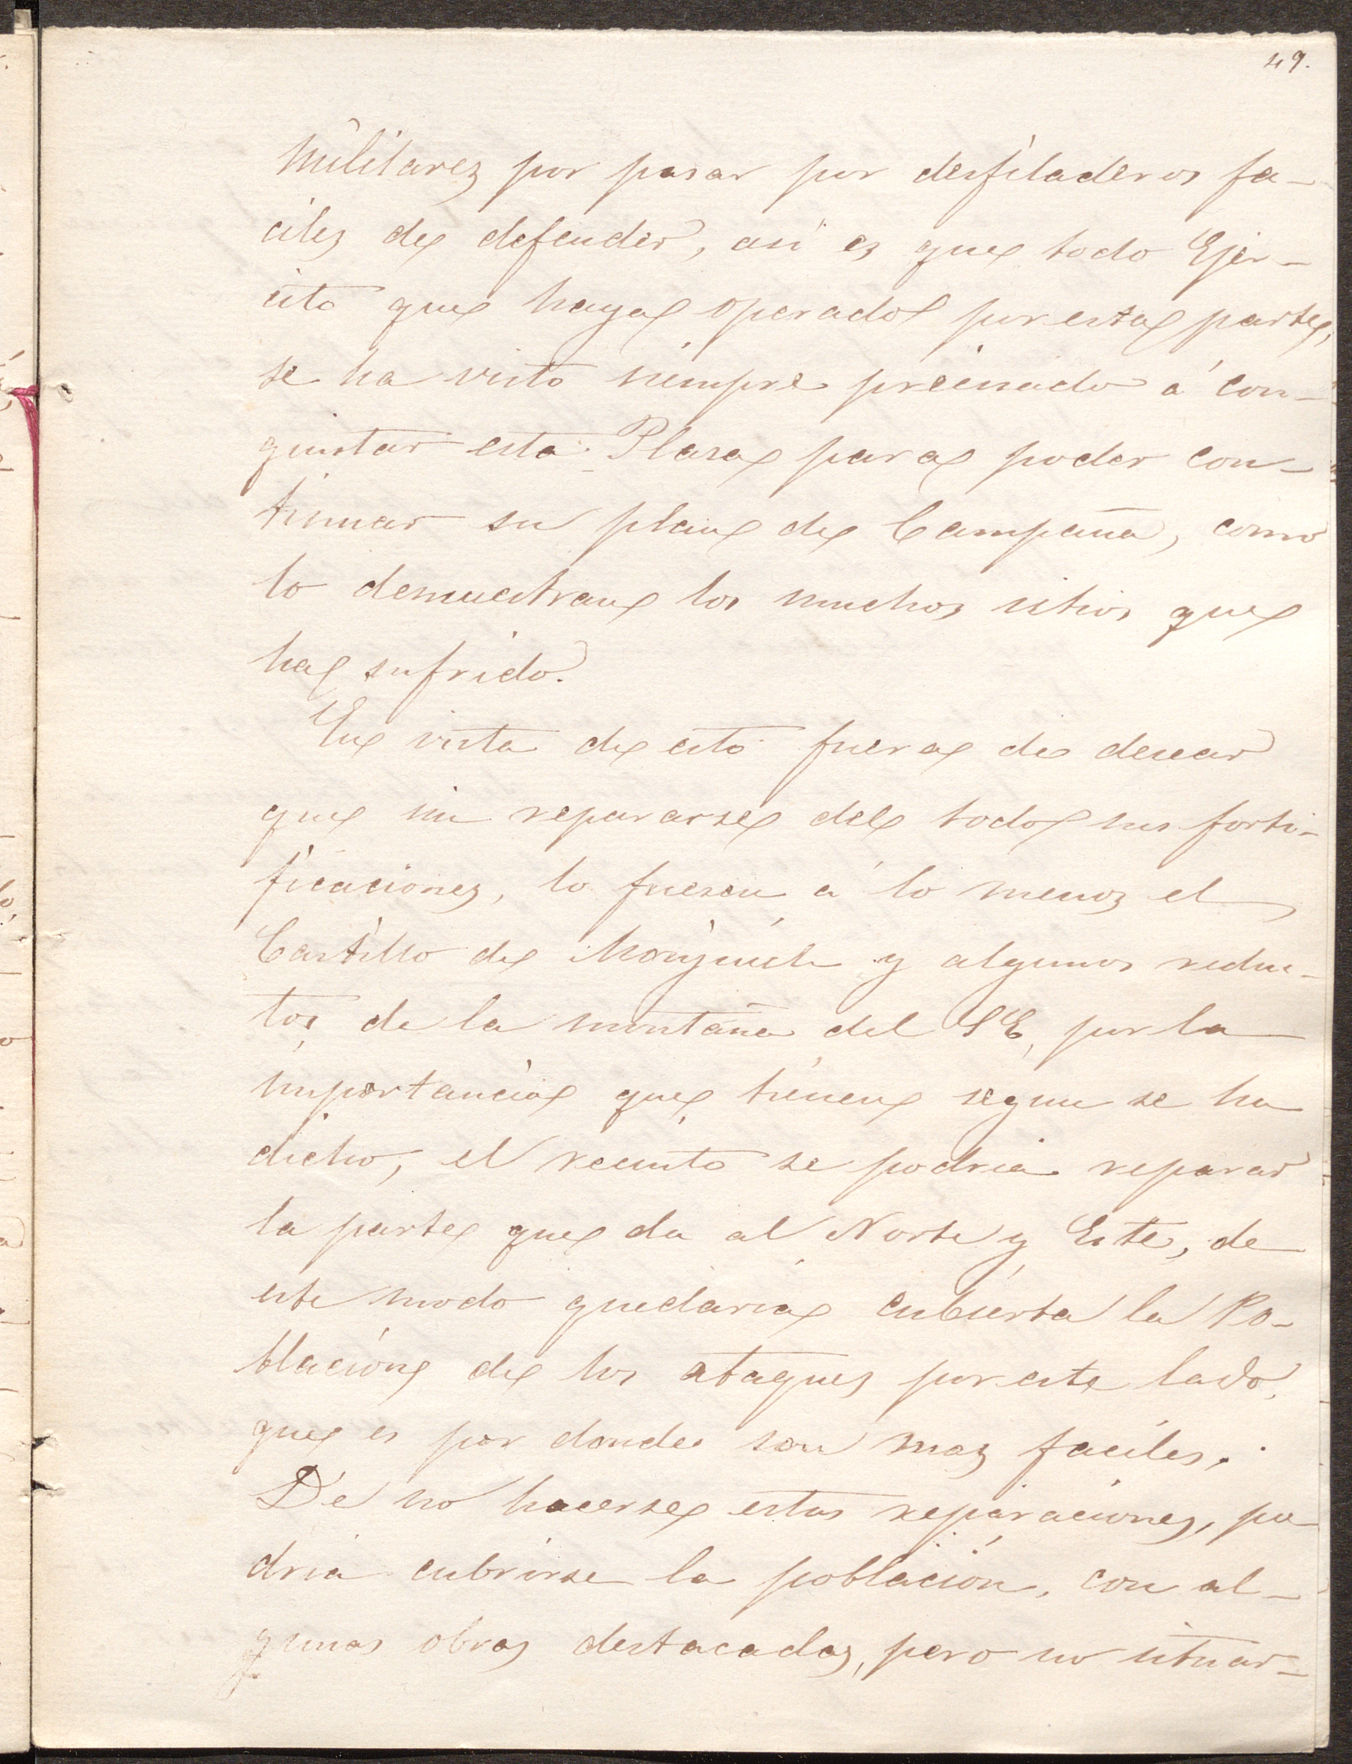 49.
Militares por pasar por desfiladeros fa-
ciles de defender, asi es que todo Ejer-
cito que haya operado por esta parte,
se ha visto siempre precisado á con-
quistar esta Plasa para poder con-
tinuar su plan de Campaña, como
lo demuestran los muchos sitios que
ha sufrido.
En vista de esto fuera de desear
que sin repararse del todo sus forti-
ficaciones, lo fuesen á lo menos el
Castillo de Monjuich y algunos reduc-
tos de la montaña del SE, por la
importancia que tienen segun se ha
dicho, el recinto se podria reparar
la parte que da al Norte y Este, de
este modo quedaria cubierta la Po-
blacion de los ataques por este lado,
que es por donde son mas faciles.
De no hacerse estas reparaciones, po-
dria cubrirse la poblacion, con al-
gunas obras destacadas, pero no situar-